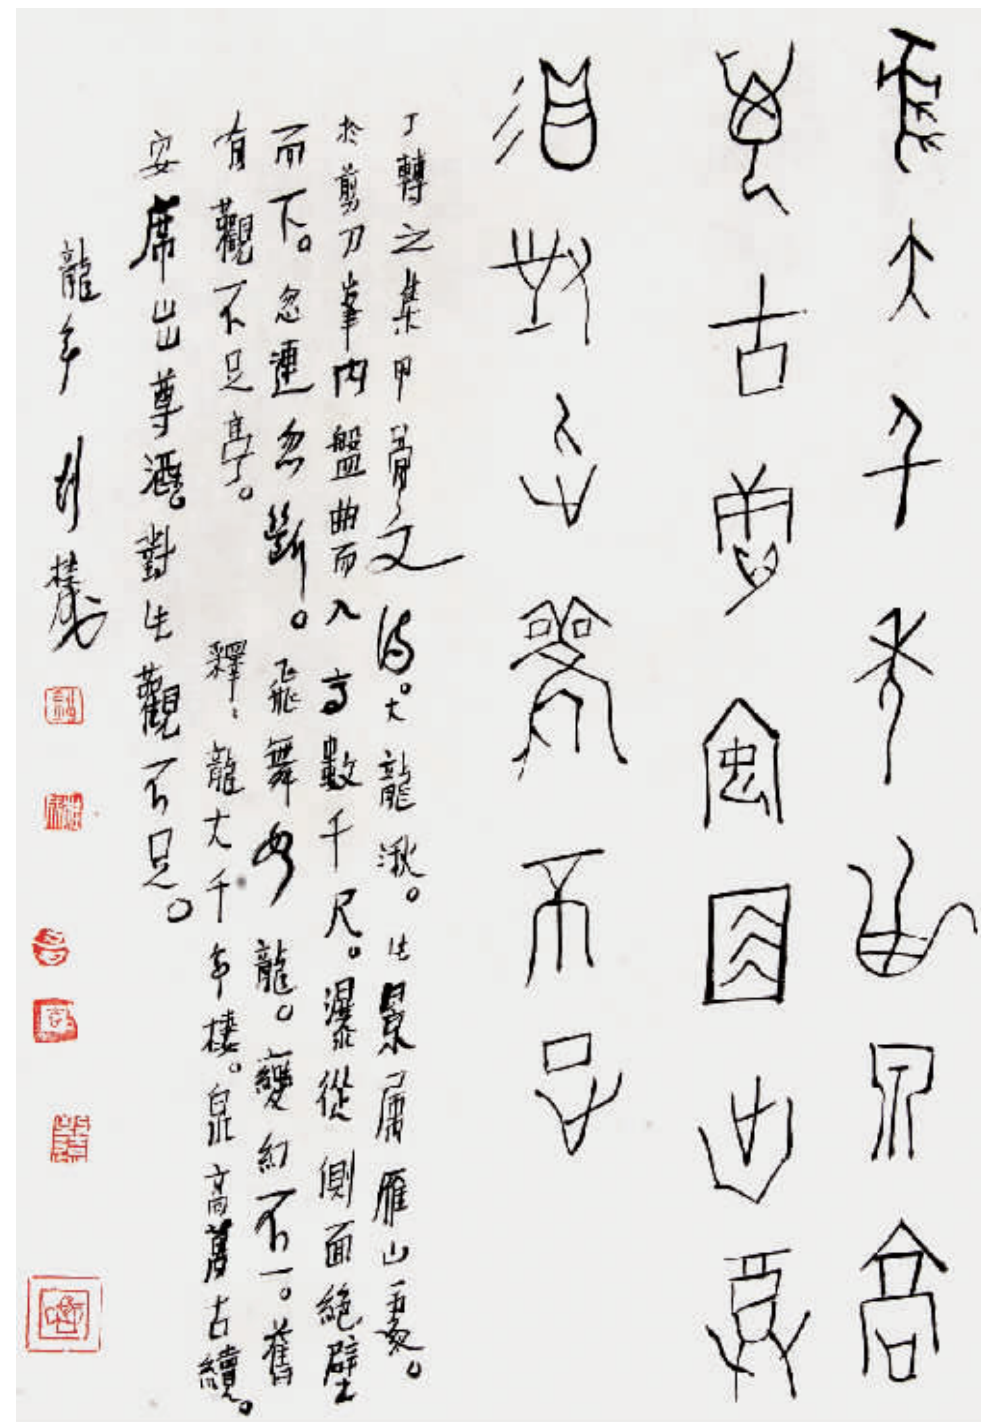 龍大千年棲泉高
萬古續安席出尊
酒對此觀不足
丁轉之集甲骨文詩。大龍湫。此景屬雁山裏。
於剪刀峯內盤曲而入高數千尺。瀑從側面絕壁
而下。忽連忽斷。飛舞如龍。變幻不一。舊
有觀不足亭。釋：龍大千年棲。泉高萬古續。
安席出尊酒。對此觀不足。
龍年